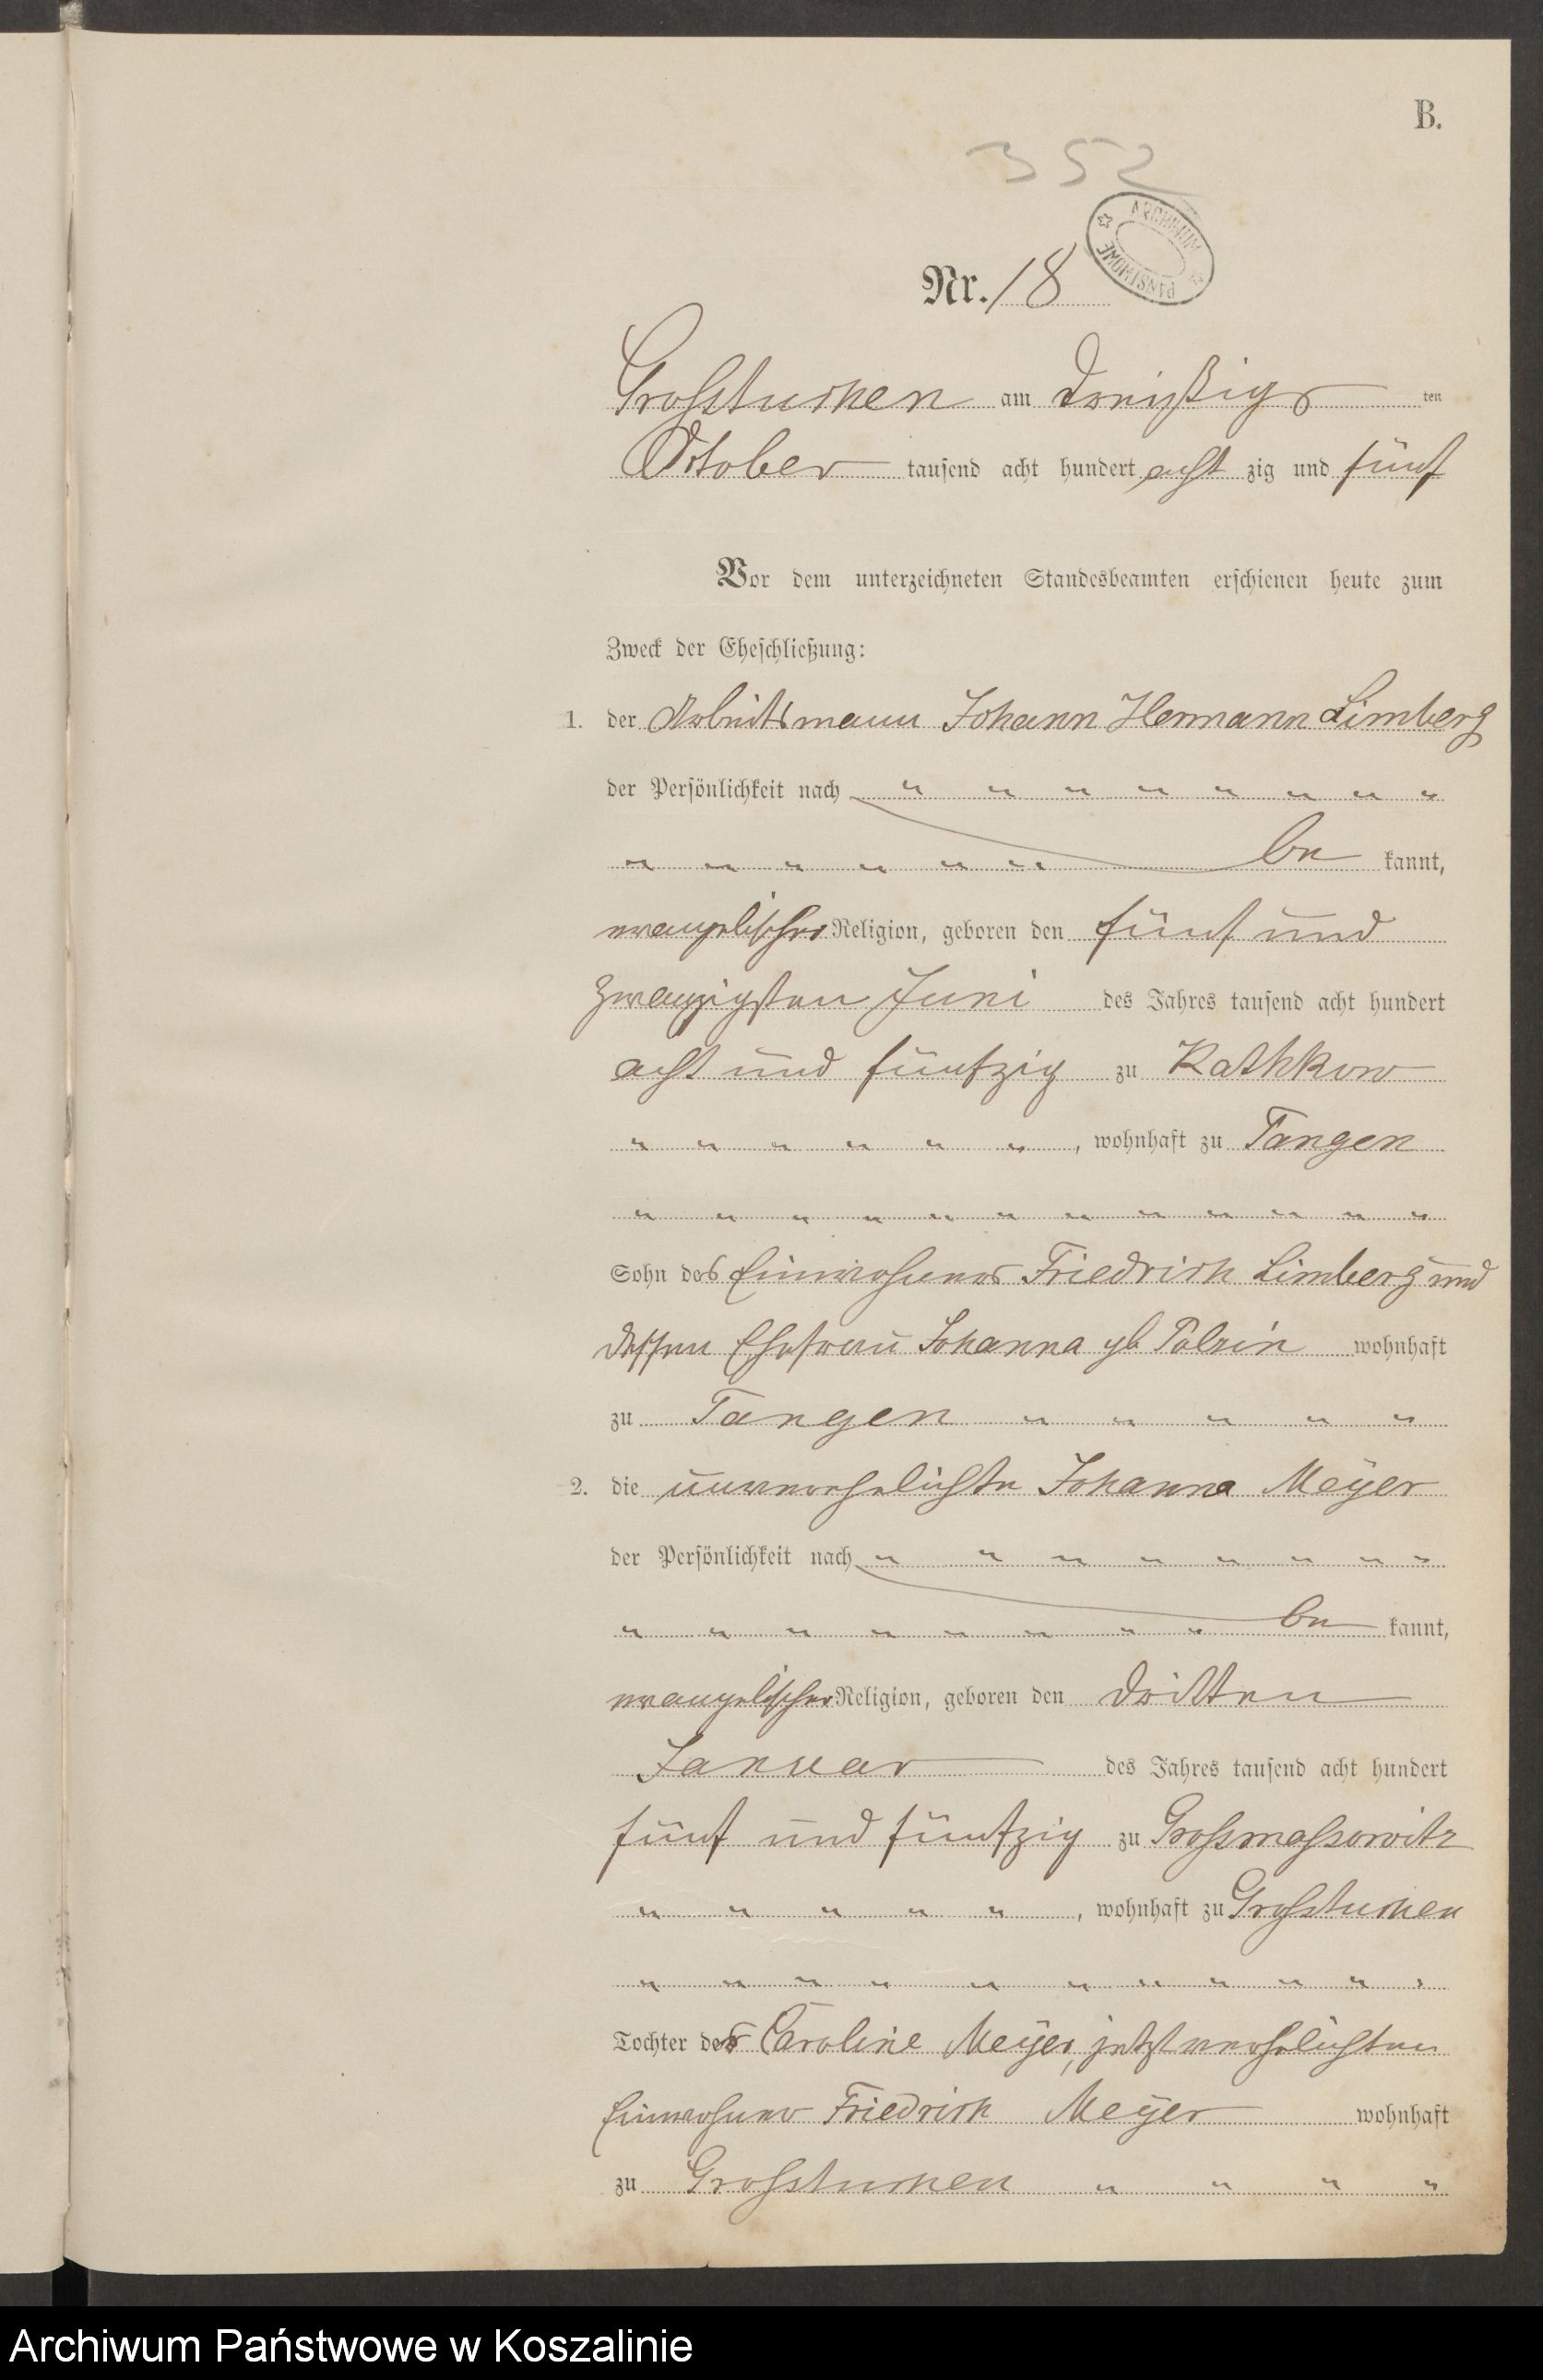 B.
352
ARCHIWUM PAŃSTWOWE
Nr. 18
Grosstuchen am dreißigs ten
October tausend acht hundert acht zig und fünf
Vor dem unterzeichneten Standesbeamten erschienen heute zum
Zweck der Eheschließung:
1. der Arbeitsmann Johann Hermann Limberg
der Persönlichkeit nach " " " " " " " "
" " " " " " be kannt,
evangelischer Religion, geboren den fünf und
zwanzigsten Juni des Jahres tausend acht hundert
acht und fünfzig zu Rathkow
" " " " " " , wohnhaft zu Tangen
" " " " " " " " " " " "
Sohn des Einwohners Friedrich Limberg und
dessen Ehefrau Johanna gb Polzin wohnhaft
zu Tangen " " " " "
2. die unverehelichte Johanna Meÿer
der Persönlichkeit nach " " " " " " " "
" " " " " " " " be kannt,
evangelischer Religion, geboren den dritten
Januar des Jahres tausend acht hundert
fünf und fünfzig zu Grossmassowitz
" " " " " , wohnhaft zu Grosstuchen
" " " " " " " " " " "
Tochter der Caroline Meÿer, jetzt verehelichten
Einwohner Friedrich Meÿer wohnhaft
zu Grosstuchen " " " "
Archiwum Państwowe w Koszalinie